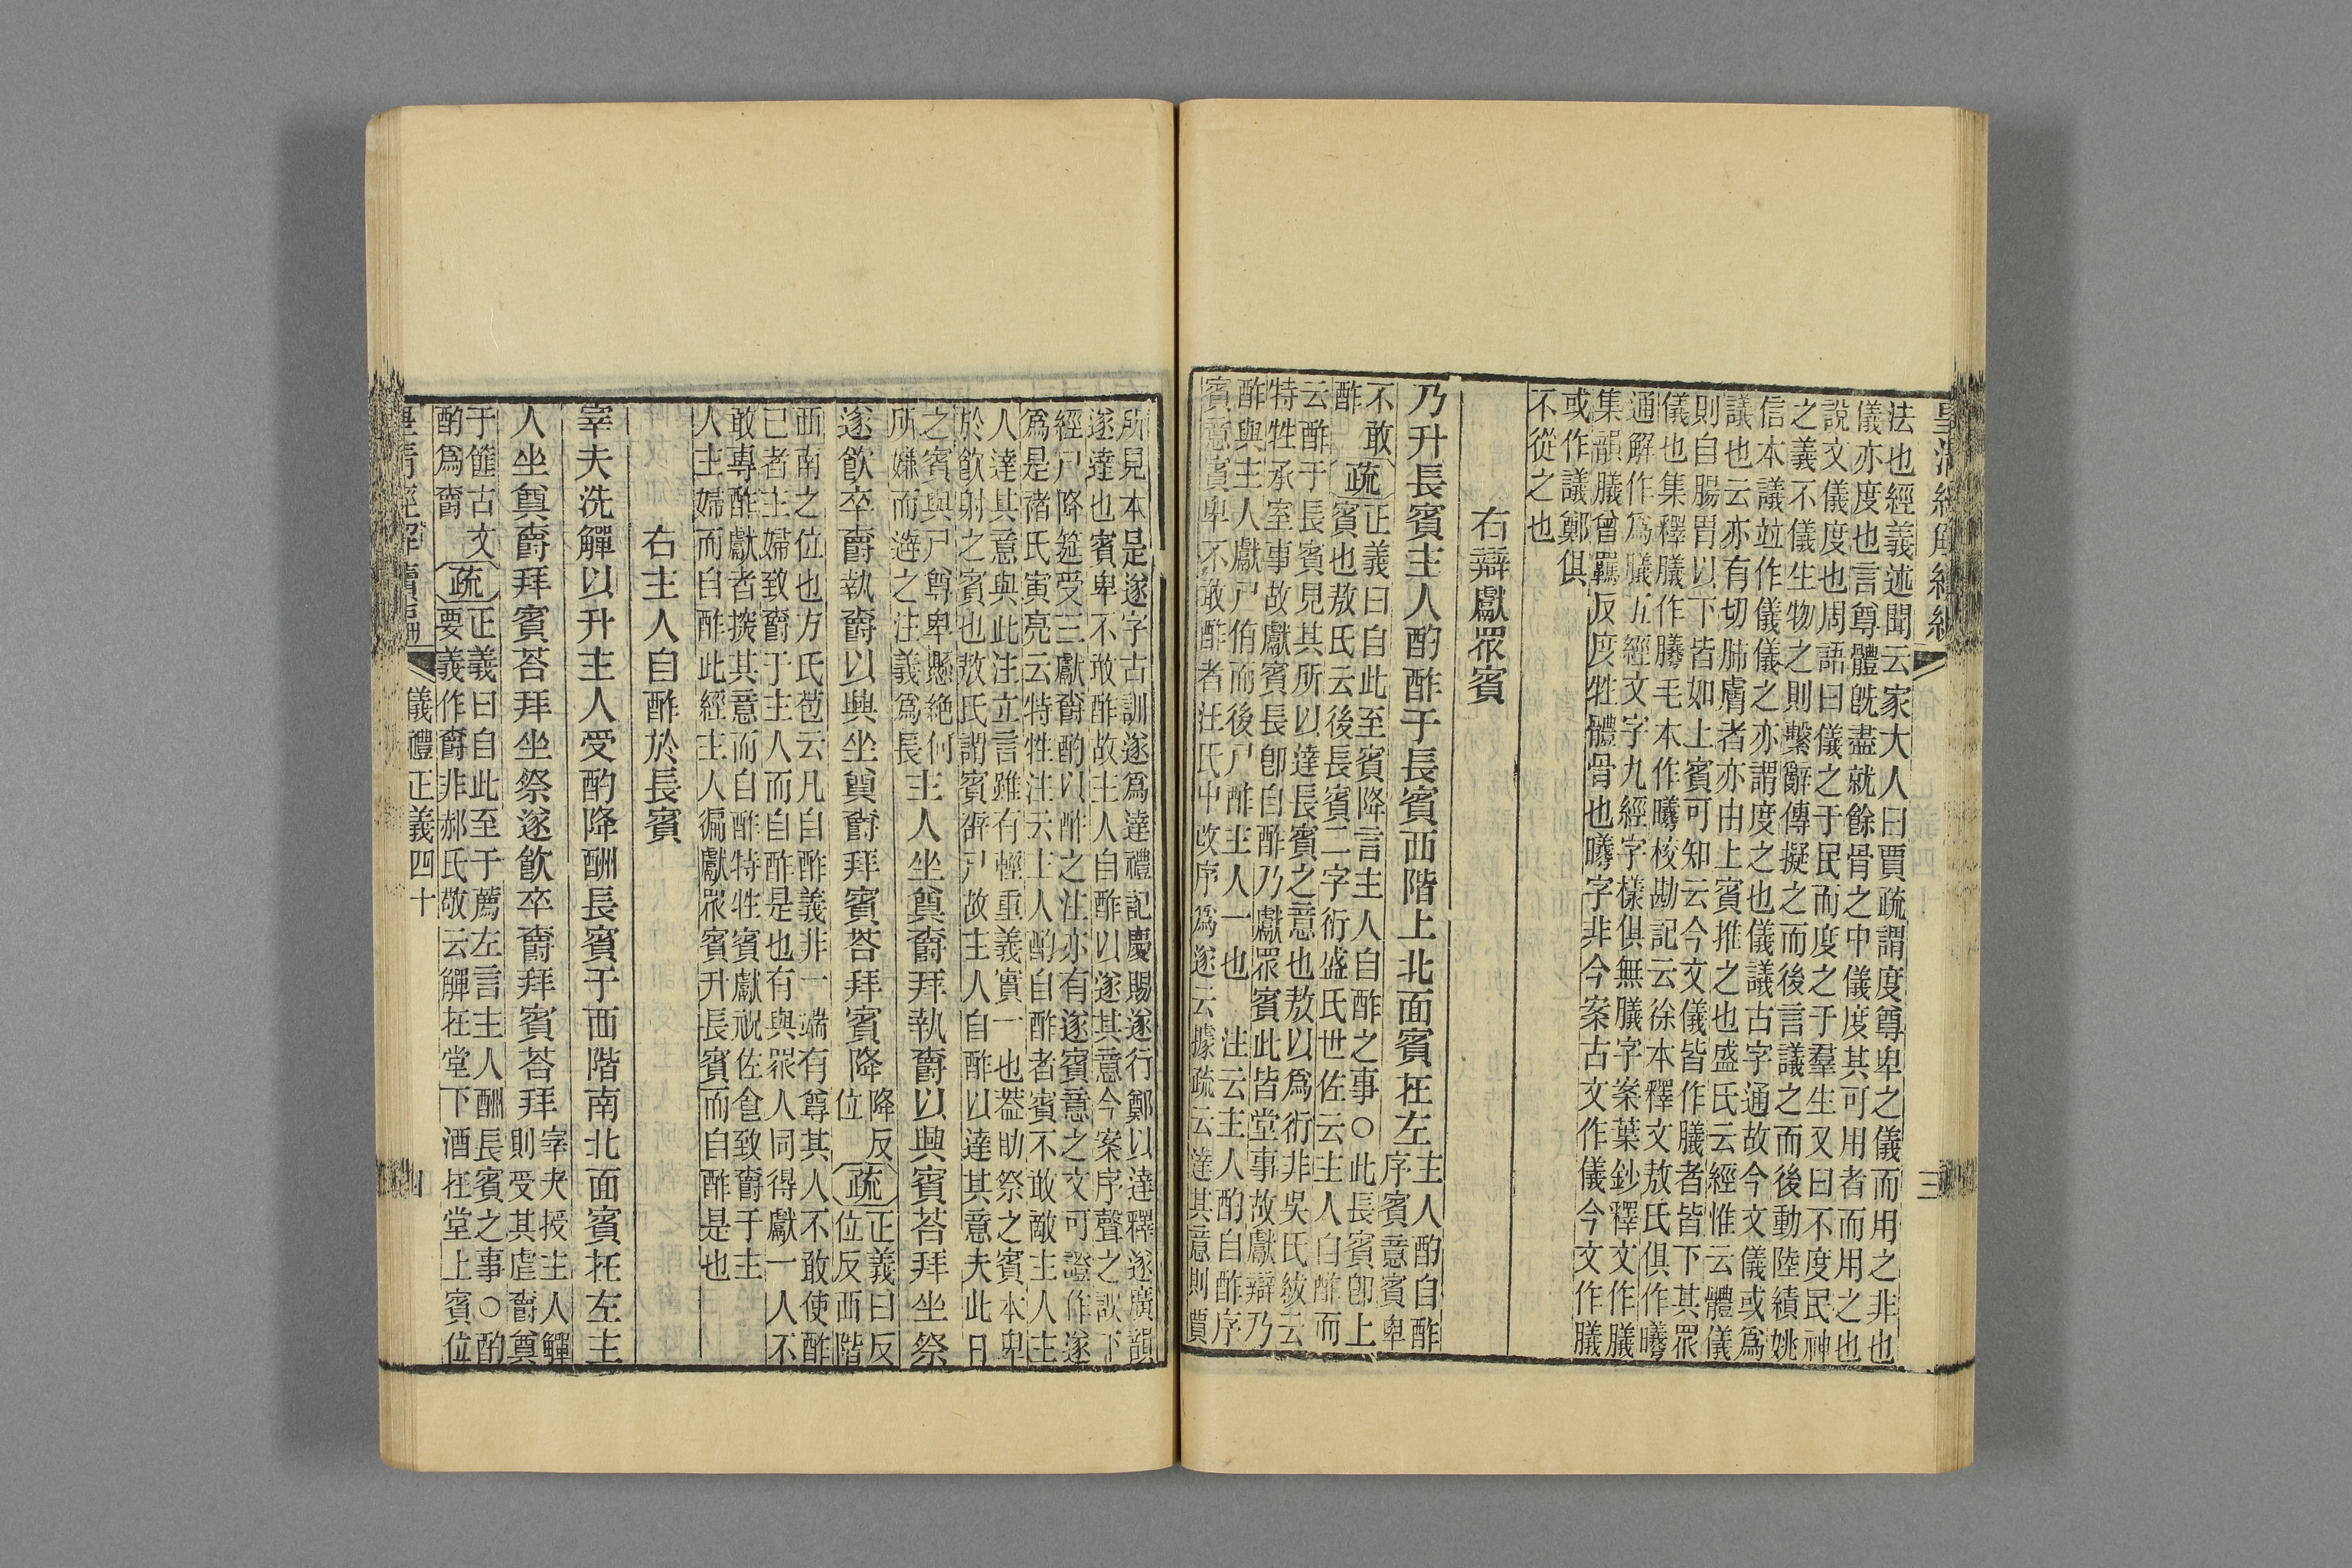 法也經義述聞云家大人曰賈疏謂度尊卑之儀而用之非也
儀亦度也言尊體旣盡就餘骨之中儀度其可用者而用之也
說文儀度也周語曰儀之于民而度之于羣生又曰不度民神
之義不儀生物之則繫辭傳擬之而後言議之而後動陸績姚
信本議竝作儀儀之亦謂度之也儀議古字通故今文儀或爲
議也云亦有切肺膚者亦由上賓推之也盛氏云經惟云體儀
則自腸胃以下皆如上賓可知云今文儀皆作膱者皆下其眾
儀也集釋膱作䑋毛本作曦校勘記云徐本釋文敖氏俱作曦
通解作爲膱五經文字九經字樣俱無膱字案葉鈔釋文作膱
集韻膱曾羈反度牲體骨也曦字非今案古文作儀今文作膱
或作議鄭俱
不從之也
右辯獻眾賓
乃升長賓主人酌酢于長賓西階上北面賓在左
主人酌自酢
序賓意賓卑
不敢
酢
疏
正義曰自此至賓降言主人自酢之事○此長賓卽上
賓也敖氏云後長賓二字衍盛氏世佐云主人自酢而
云酢于長賓見其所以達長賓之意也敖以爲衍非吳氏紱云
特牲承室事故獻賓長卽自酢乃獻眾賓此皆堂事故獻辯乃
酢與主人獻尸侑而後尸酢主人一也 注云主人酌自酢序
賓意賓卑不敢酢者汪氏中改序爲遂云據疏云達其意則賈
所見本是遂字古訓遂爲達禮記慶賜遂行鄭以達釋遂廣韻
遂達也賓卑不敢酢故主人自酢以遂其意今案序聲之誤下
經尸降筵受三獻爵酌以酢之注亦有遂賓意之文可證作遂
爲是褚氏寅亮云特牲注云主人酌自酢者賓不敢敵主人主
人達其意與此注立言雖有輕重義實一也葢助祭之賓本卑
於飮射之賓也敖氏謂賓辟尸故主人自酢以達其意夫此日
之賓與尸尊卑懸絶何
所嫌而避之注義爲長
主人坐奠爵拜執爵以興賓荅拜坐祭
遂飮卒爵執爵以興坐奠爵拜賓荅拜賓降
降反
位
疏
正義曰反
位反西階
西南之位也方氏苞云凡自酢義非一端有尊其人不敢使酢
己者主婦致爵于主人而自酢是也有與眾人同得獻一人不
敢專酢獻者揆其意而自酢特牲賓獻祝佐食致爵于主
人主婦而自酢此經主人徧獻眾賓升長賓而自酢是也
右主人自酢於長賓
宰夫洗觶以升主人受酌降酬長賓于西階南北面賓在左主
人坐奠爵拜賓荅拜坐祭遂飮卒爵拜賓荅拜
宰夫授主人觶
則受其虛爵奠
于篚古文
酌爲爵
疏
正義曰自此至于薦左言主人酬長賓之事○酌
要義作爵非郝氏敬云觶在堂下酒在堂上賓位
儀禮正義四十
三